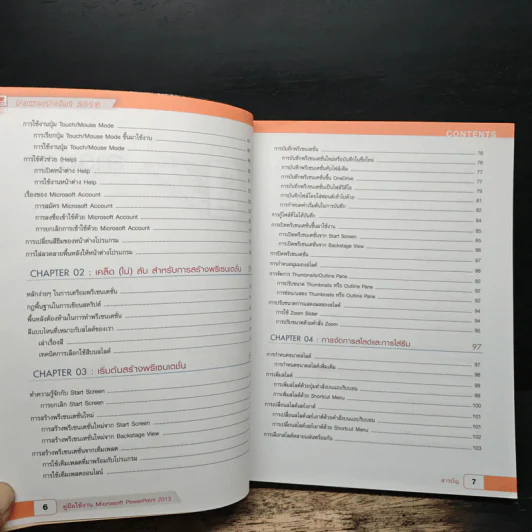 PowerPoint 2013
การใช้งานปุ่ม Touch/Mouse Mode
การเรียกปุ่ม Touch/Mouse Mode ขึ้นมาใช้งาน
การใช้งานปุ่ม Touch/Mouse Mode
การใช้ตัวช่วย (Help)
การเปิดหน้าต่าง Help
การใช้งานหน้าต่าง Help
เรื่องของ Microsoft Account
การสมัคร Microsoft Account
การลงชื่อเข้าใช้ด้วย Microsoft Account
การยกเลิกการเข้าใช้ด้วย Microsoft Account
การเปลี่ยนสีธีมของหน้าต่างโปรแกรม
การใส่ลวดลายพื้นหลังให้หน้าต่างโปรแกรม
CHAPTER 02 : เคล็ด (ไม่) ลับ สำหรับการสร้างพรีเซนเตชั่น
หลักง่ายๆ ในการเตรียมพรีเซนเตชั่น
กฎพื้นฐานในการเขียนสคริปต์
พื้นหลังต้องห้ามในการทำพรีเซนเตชั่น
สีแบบไหนที่เหมาะกับสไลด์ของเรา
เล่าเรื่องสี
เทคนิคการเลือกใช้สีบนสไลด์
CHAPTER 03 : เริ่มต้นสร้างพรีเซนเตชั่น
ทำความรู้จักกับ Start Screen
การยกเลิก Start Screen
การสร้างพรีเซนเตชั่นใหม่
การสร้างพรีเซนเตชั่นใหม่จาก Start Screen
การสร้างพรีเซนเตชั่นใหม่จาก Backstage View
การสร้างพรีเซนเตชั่นจากเท็มเพลต
การใช้เท็มเพลตที่มาพร้อมกับโปรแกรม
การใช้เท็มเพลตออนไลน์
6 คู่มือใช้งาน Microsoft PowerPoint 2013
CONTENTS
การบันทึกพรีเซนเตชั่น 76
การบันทึกพรีเซนเตชั่นใหม่หรือบันทึกในชื่อใหม่ 76
การบันทึกพรีเซนเตชั่นทับไฟล์เดิม 77
การบันทึกพรีเซนเตชั่นขึ้น OneDrive 77
การบันทึกพรีเซนเตชั่นเป็นไฟล์วิดีโอ
การบันทึกไฟล์โดยใส่ฟอนต์เข้าไปด้วย
การกำหนดค่าเริ่มต้นในการบันทึก
กู้ไฟล์ที่ไม่ได้บันทึก
การเปิดพรีเซนเตชั่นขึ้นมาใช้งาน
การเปิดพรีเซนเตชั่นจาก Start Screen
การเปิดพรีเซนเตชั่นจาก Backstage View
การปิดพรีเซนเตชั่น
การกำหนดมุมมองสไลด์
การจัดการ Thumbnails/Outline Pane
การปรับขนาด Thumbnails หรือ Outline Pane
การซ่อน/แสดง Thumbnails หรือ Outline Pane
การปรับขนาดการแสดงผลของสไลด์
การใช้ Zoom Slider
การปรับขนาดด้วยคำสั่ง Zoom
CHAPTER 04 : การจัดการสไลด์และการใส่ธีม 97
การกำหนดขนาดสไลด์ 98
การกำหนดขนาดเพิ่มเติม 98
การเพิ่มสไลด์ 98
การเพิ่มสไลด์ด้วยปุ่มคำสั่งบนแถบริบบอน 99
การเพิ่มสไลด์ด้วย Shortcut Menu
การเปลี่ยนสไลด์เลย์เอาต์ 100
การเปลี่ยนสไลด์เลย์เอาต์ด้วยคำสั่งบนแถบริบบอน 101
การเปลี่ยนสไลด์เลย์เอาต์ด้วย Shortcut Menu 102
การเลือกสไลด์หลายแผ่นพร้อมกัน 103
สารบัญ 7